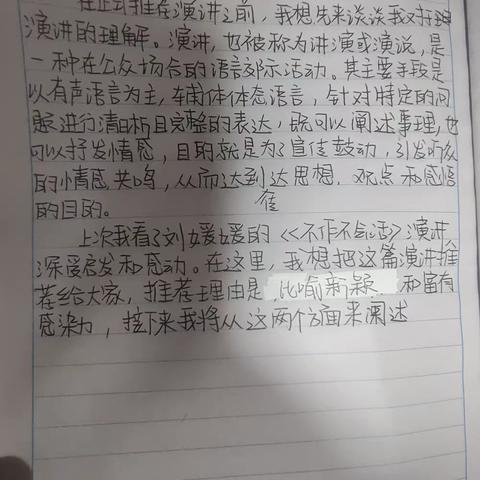 在正式推荐演讲之前，我想先来谈谈我对
演讲的理解。演讲，也被称为讲演或演说，是
一种在公众场合的语言交际活动。其主要手段是
以有声语言为主，辅体体态语言，针对特定的问
题进行清晰且完整的表达，既可以阐述事理，也
可以抒发情感，目的就是为了宣传鼓动，引发听众
的情感共鸣，从而达到传达思想、观点和感悟
的目的。
上次我看了刘媛媛的《不作不会活》演讲
深受启发和感动。在这里，我想把这篇演讲推
荐给大家，推荐理由是 比喻新颖 和富有
感染力，接下来我将从这两个方面来阐述